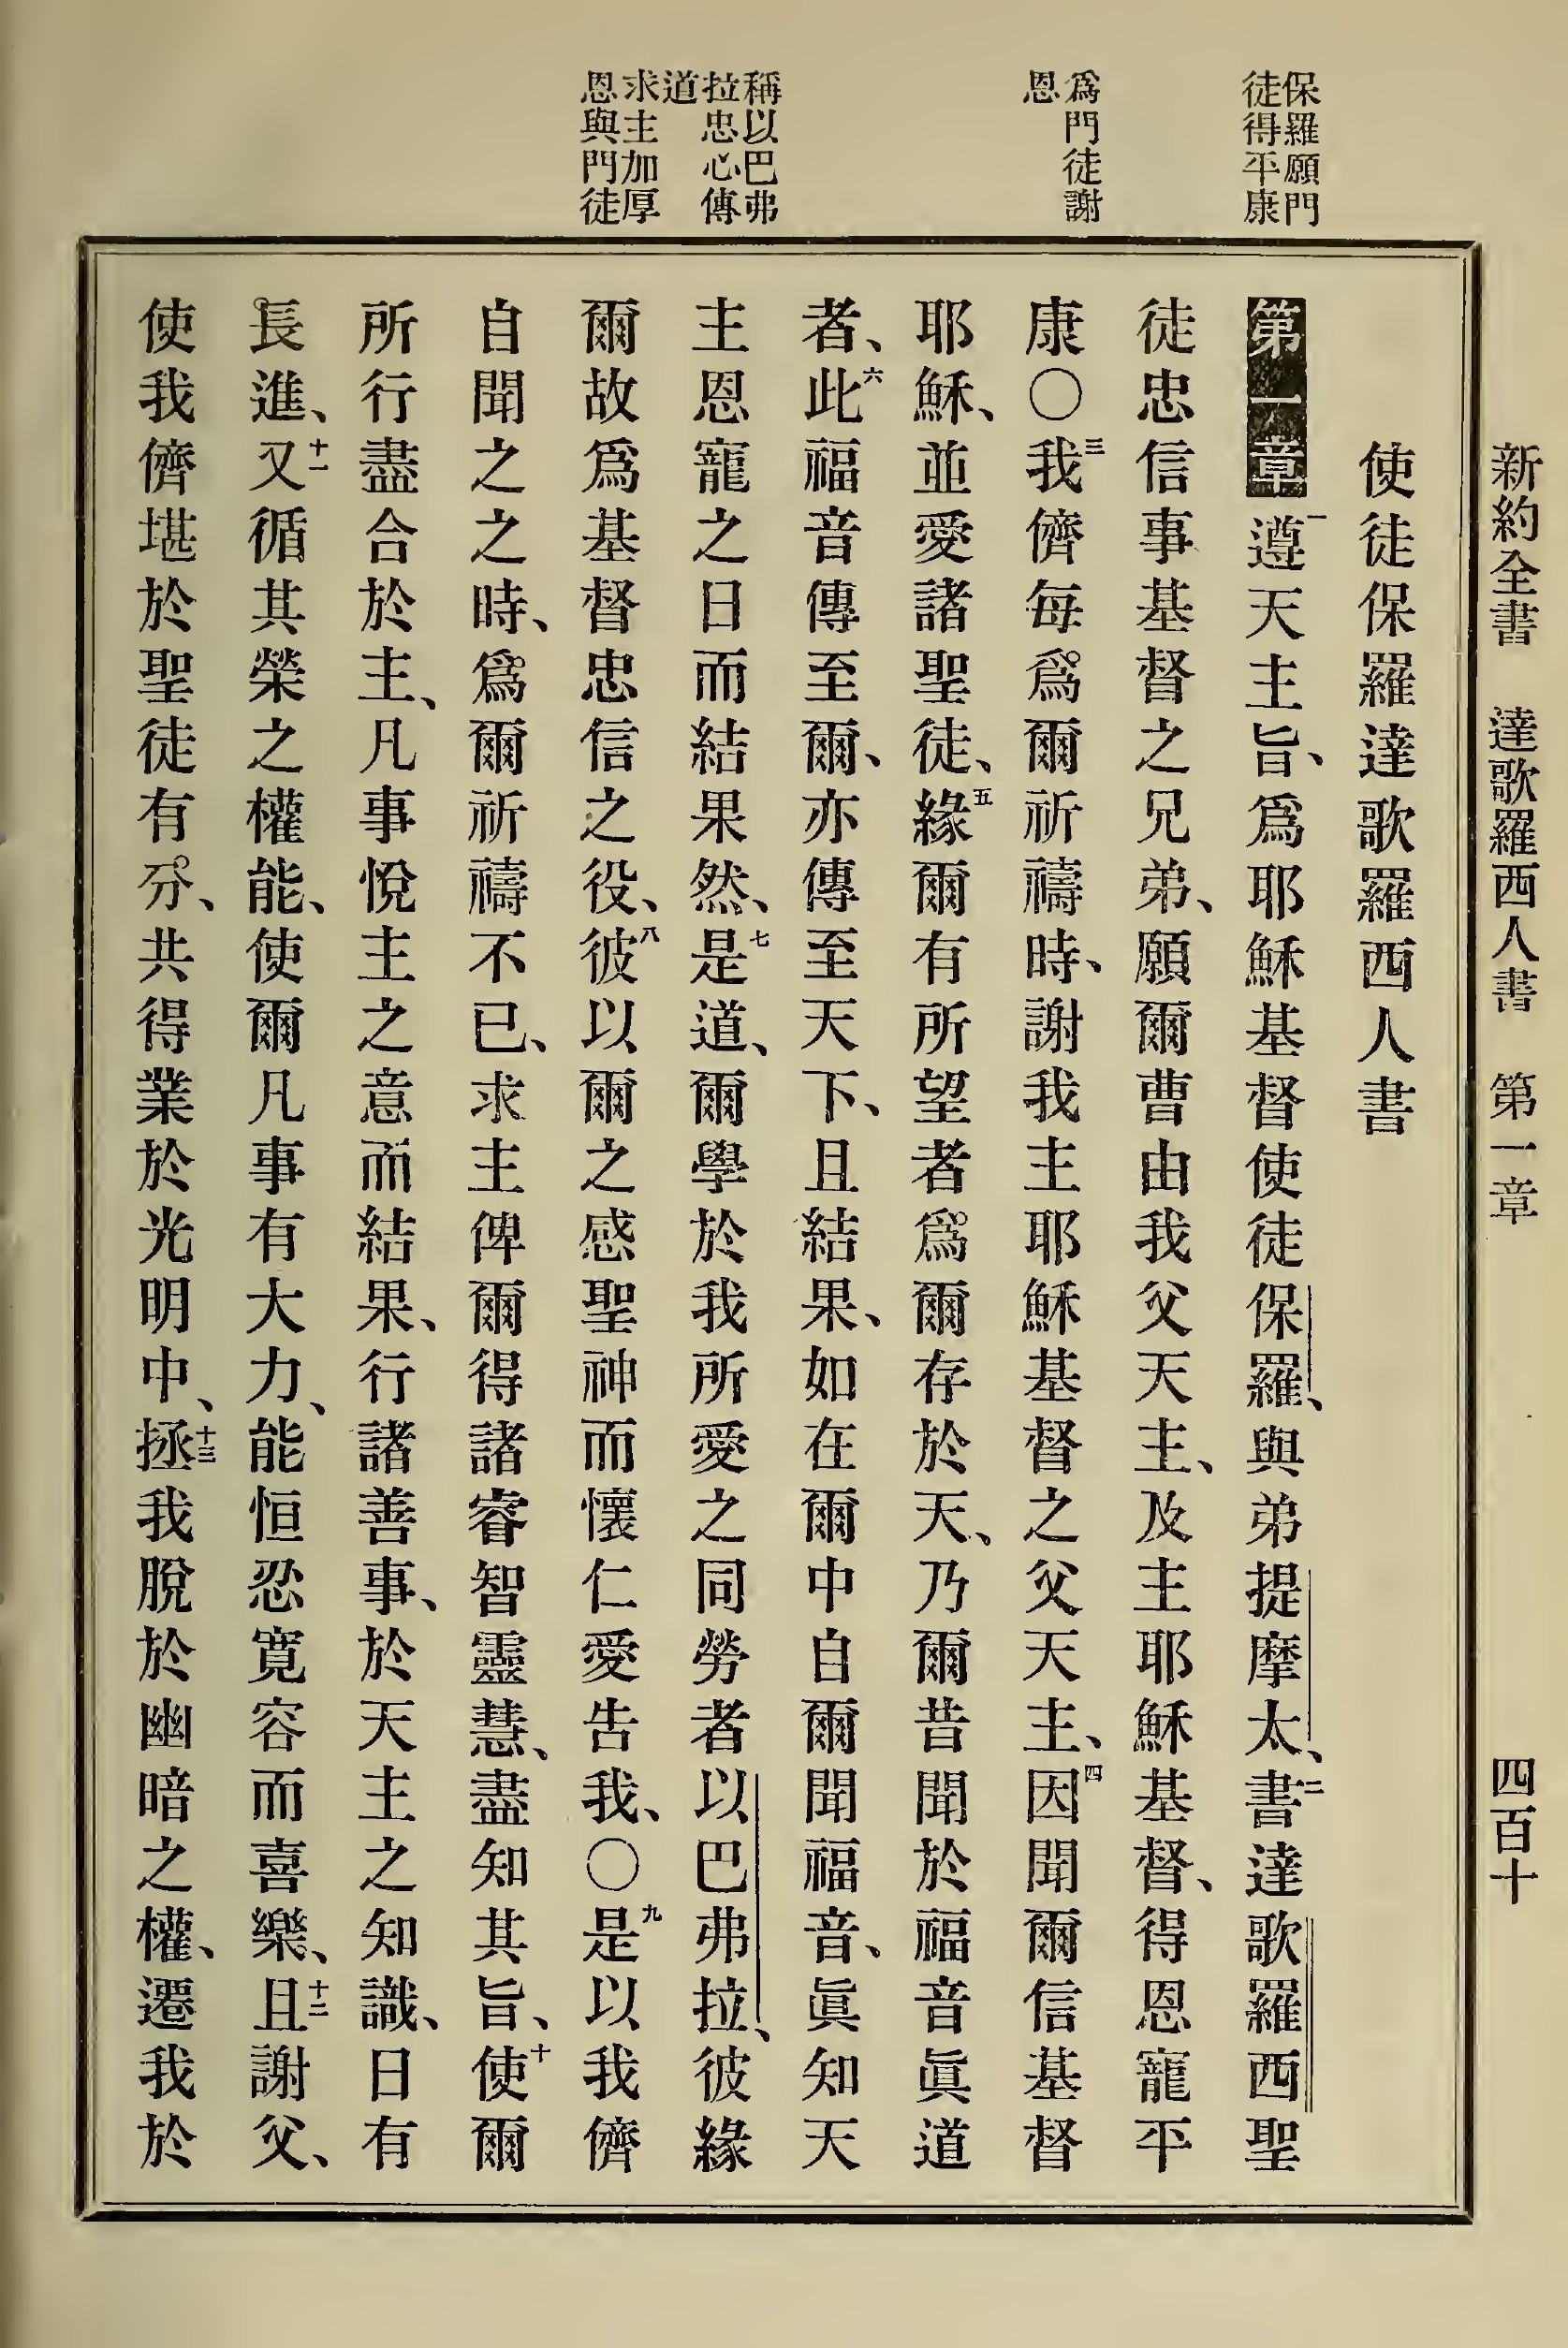 新約全書 達歌羅西人書 第一章 四百十
保羅願門
徒得平康
爲門徒謝
恩
稱以巴弗
拉忠心傳
道
求主加厚
恩與門徒
使徒保羅達歌羅西人書
第一章 一遵天主旨、爲耶穌基督使徒保羅、與弟提摩太、二書達歌羅西聖
徒忠信事基督之兄弟、願爾曹由我父天主、及主耶穌基督、得恩寵平
康〇三我儕每爲爾祈禱時、謝我主耶穌基督之父天主、四因聞爾信基督
耶穌、並愛諸聖徒、五緣爾有所望者爲爾存於天、乃爾昔聞於福音眞道
者、六此福音傳至爾、亦傳至天下、且結果、如在爾中自爾聞福音、眞知天
主恩寵之日而結果然、七是道、爾學於我所愛之同勞者以巴弗拉、彼緣
爾故爲基督忠信之役、八彼以爾之感聖神而懷仁愛告我、〇九是以我儕
自聞之之時、爲爾祈禱不已、求主俾爾得諸睿智靈慧、盡知其旨、十使爾
所行盡合於主、凡事悅主之意而結果、行諸善事、於天主之知識、日有
長進、十一又循其榮之權能、使爾凡事有大力、能恒忍寬容而喜樂、十二且謝父、
使我儕堪於聖徒有分、共得業於光明中、十三拯我脫於幽暗之權、遷我於